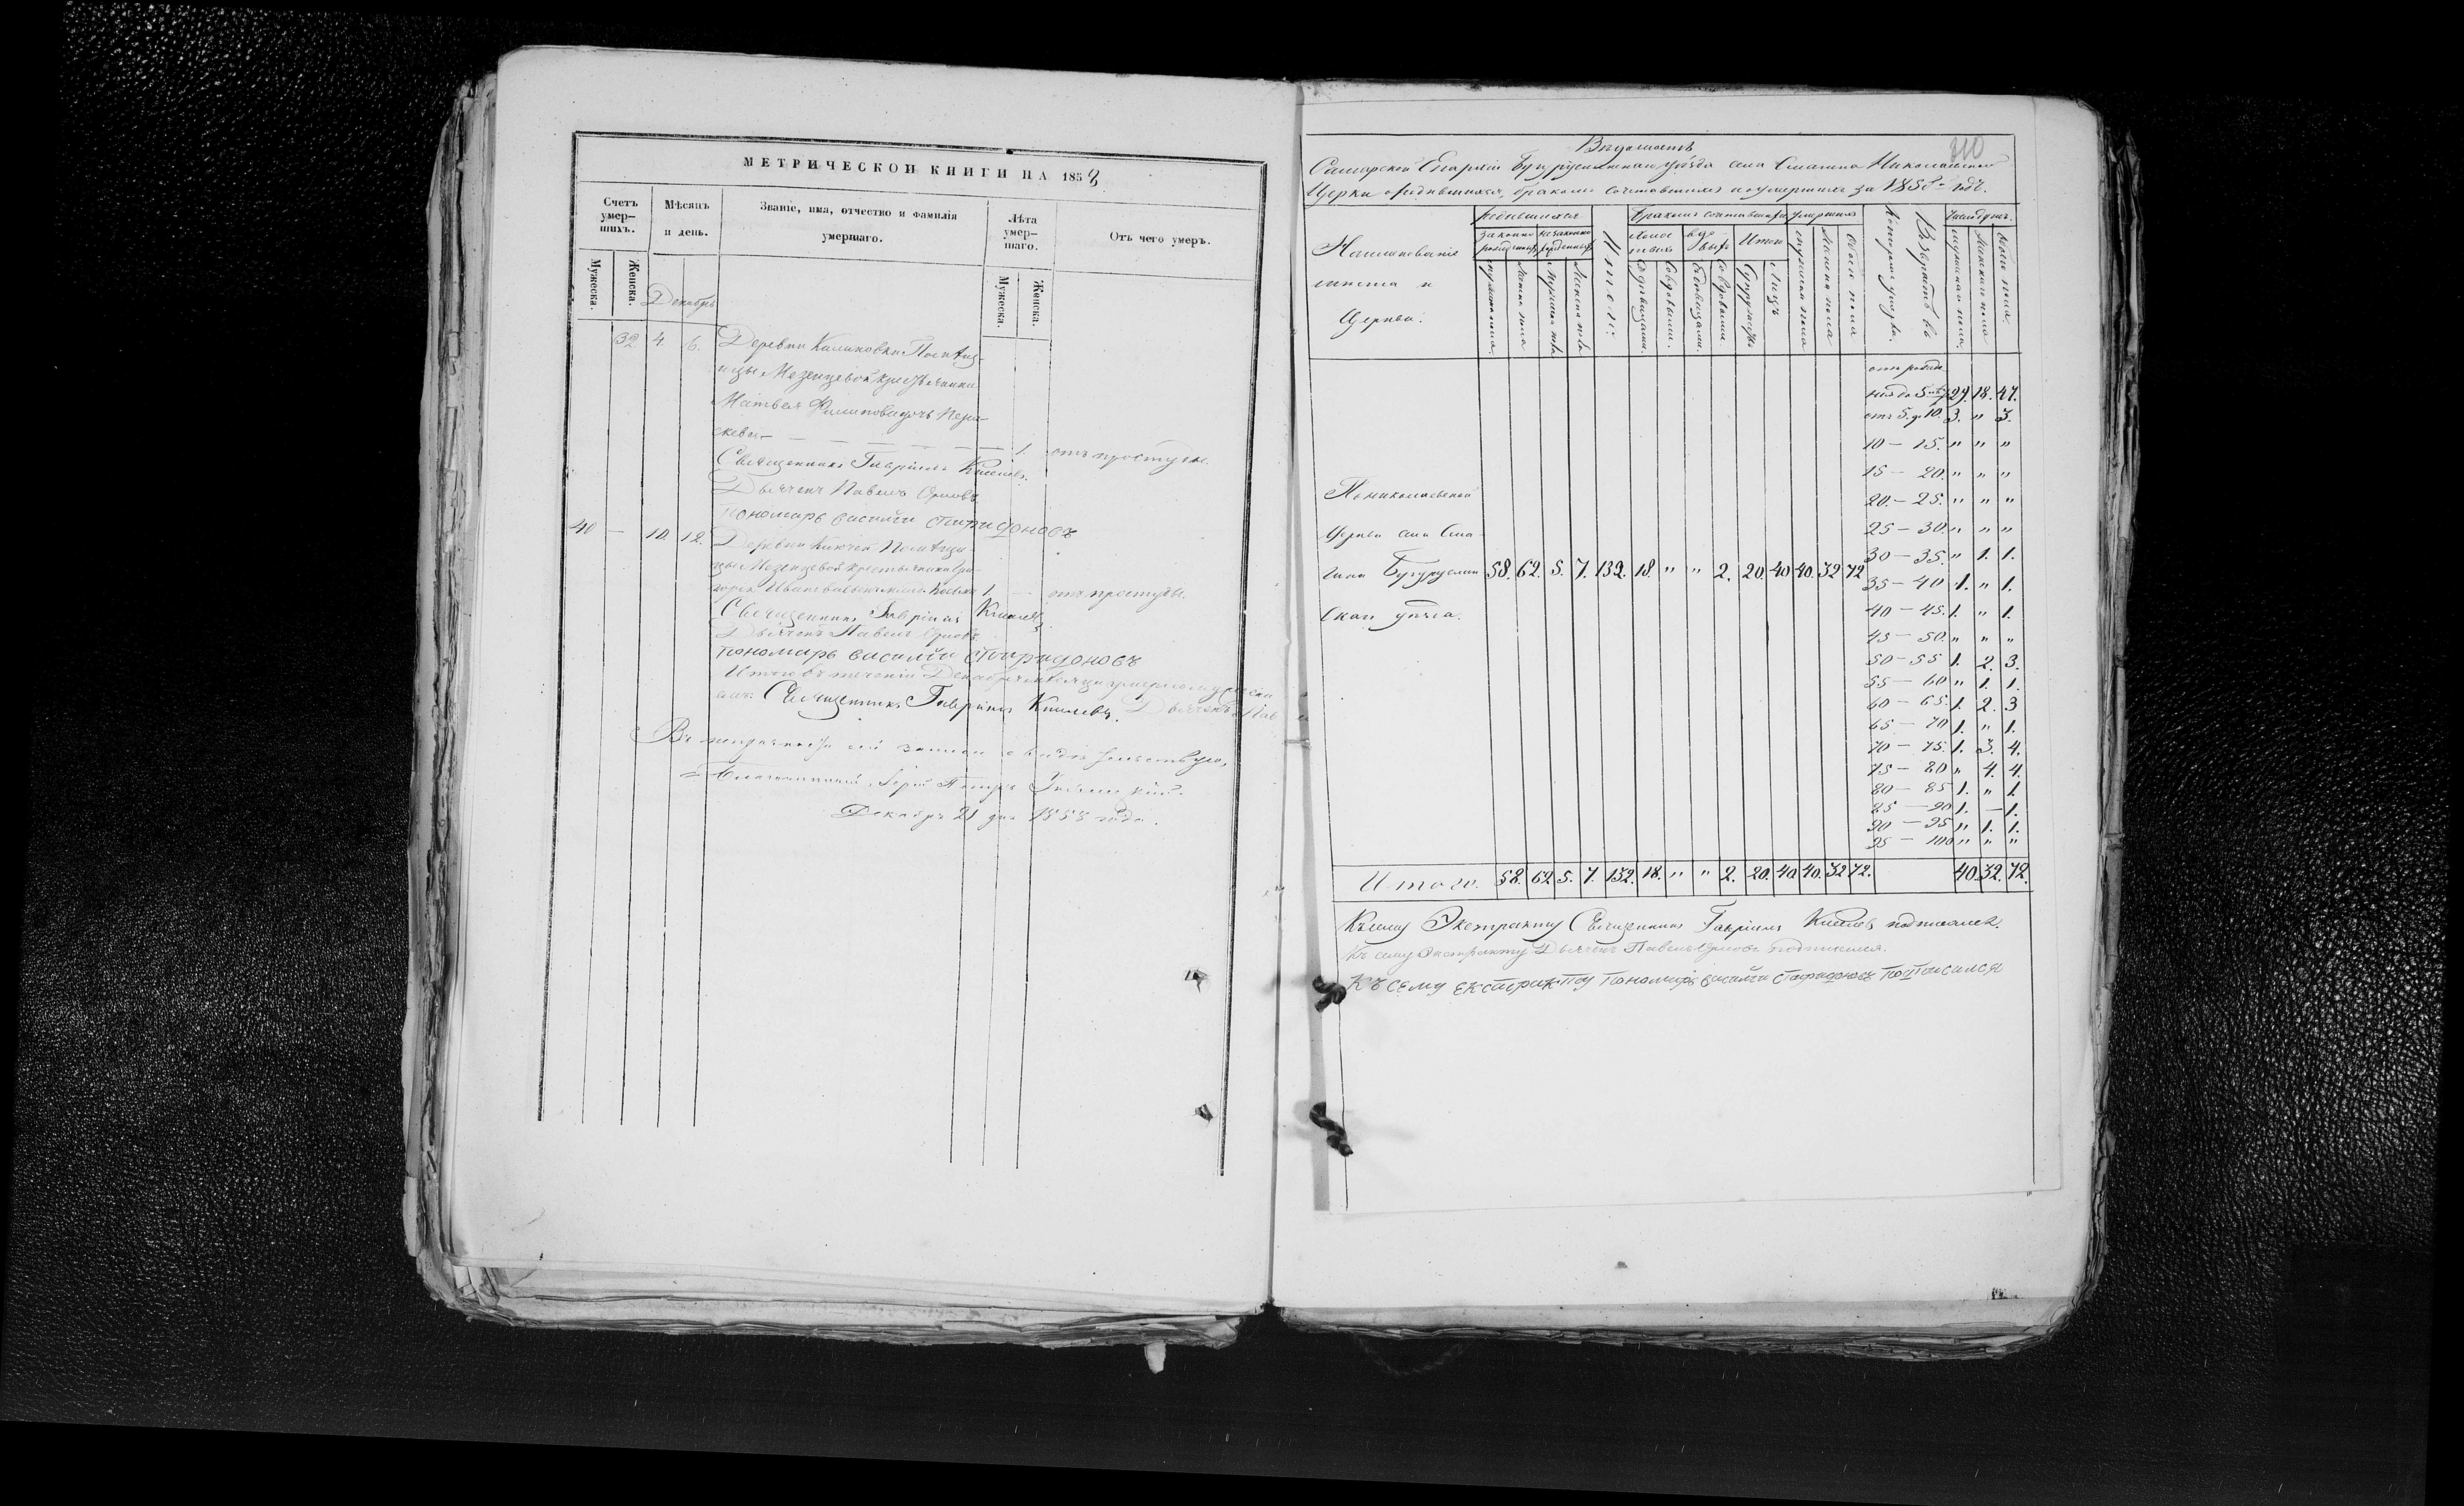 МЕТРИЧЕСКОЙ КНИГИ НА 1858
Счетъ умер-шихъ.
Мѣсяцъ и день.
Званіе, имя, отчество и фамилія умершаго.
Лѣта умер-шаго.
Отъ чего умеръ.
Мужеска. Женска. Мужеска. Женска.
Декабрь
32 4. 6. Деревни Калиновки Помѣщ-
ицы Мезенцевой крестьянина
Матвея Филиповадочь Пара-
скева 1. отъ простуды.
Священникъ Гавріилъ
Дьячекъ Павелъ Орловъ
пономарь василий спиридоновъ
40 — 10. 12. Деревни Ключей Помѣщи-
цы Мезенцевой крестьянина Гри-
горья Иванова сынъ 1 — отъ простуды.
Священникъ Гавріилъ
Дьячекъ Павелъ Орловъ
пономарь василий спиридоновъ
Итого въ теченіи Декабря мѣсяца умерло
Священникъ Гавріилъ Дьячекъ Пав
Въ сей записи свидѣтельствую,
Благочинный Іерей Петръ
Декабря 21 дня 1858 года.
Вѣдомость 210
Самарской Епархіи Бугурусланскаго уѣзда села Николаевской
Церкви о родившихся, бракомъ сочетавшихся и умершихъ за 1858й годъ.
Наименованіе
мѣста и
Церкви.
родившихся
законно рожденныхъ незаконно рожденныхъ
Итого
бракомъ сочетавшихся
Итого
умершихъ
мужеска пола женска пола обоего пола
Возрастъ въ
которомъ умерли.
Число душъ.
мужескаго пола женскаго пола обоего пола
отъ рожде-
нія до 5 29. 18. 47.
отъ 5. до 10. 3. " 3.
10 — 15. " " "
15 — 20. " " "
20 — 25. " " "
25 — 30. " " "
30 — 35. " 1. 1.
35 — 40 1. " 1.
40 — 45. 1. " 1.
45 — 50. " " "
50 — 55 1. 2. 3.
55 — 60 " 1. 1.
60 — 65. 1. 2. 3
65 — 70 1. " 1.
70 — 75. 1. 3. 4.
75 — 80 " 4. 4.
80 — 85 1. " 1.
85 — 90 1. — 1.
90 — 95 " 1. 1.
95 — 100 " " "
По николаевской
Церкви села
Бугуруслан
скаго уѣзда. 58. 62. 5. 7. 132. 18. " " 2. 20. 40 40. 32 72
Итого. 58. 62 5. 7. 132. 18. " " 2. 20. 40 40. 32 72. 40 32. 72.
Къ сему Экстракту Священникъ Гавріилъ подписался.
Къ сему Экстракту Дьячекъ Павелъ Орловъ подписался.
Къ сему екстрактоу пономарь василий спиридоновъ подписался